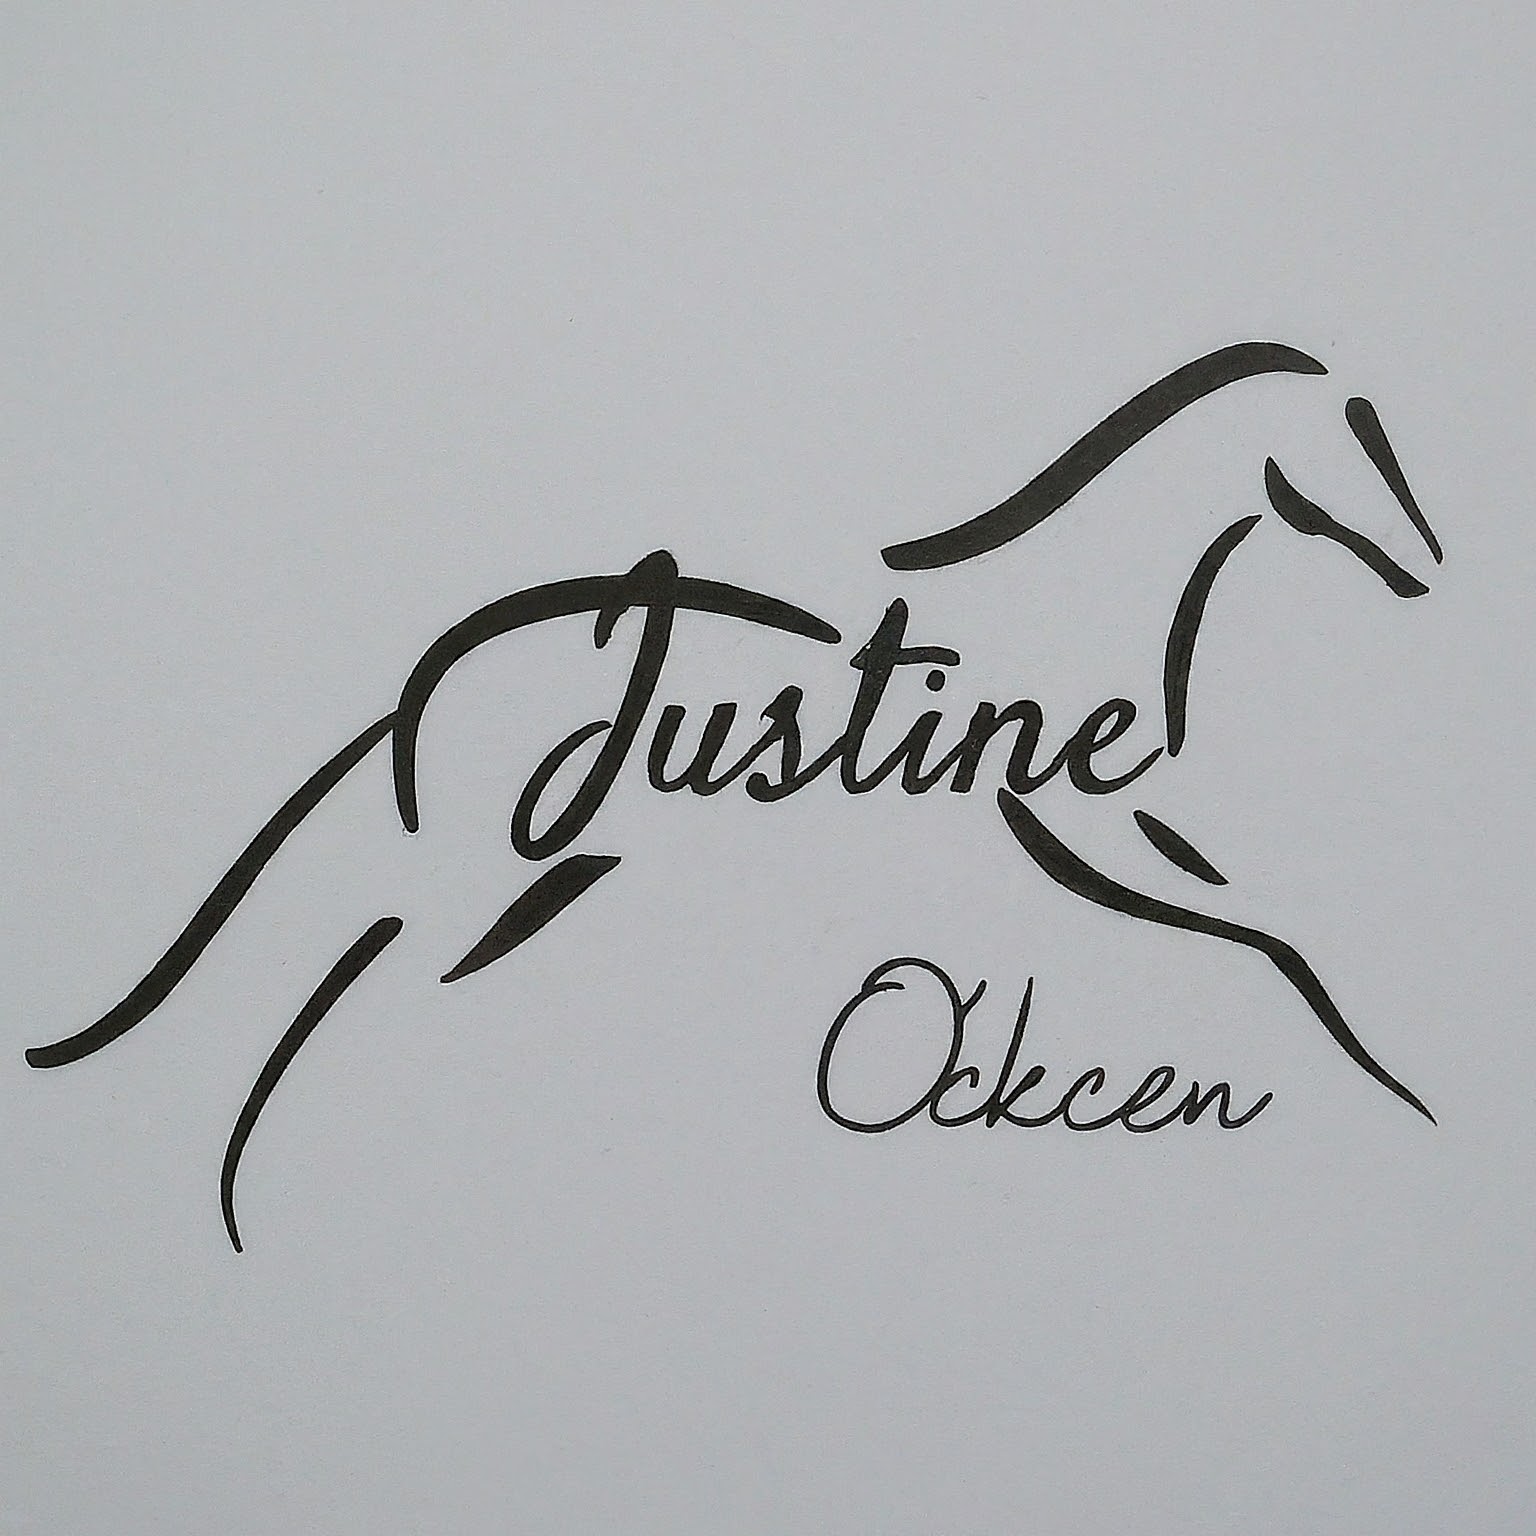 Justine
Ockcen